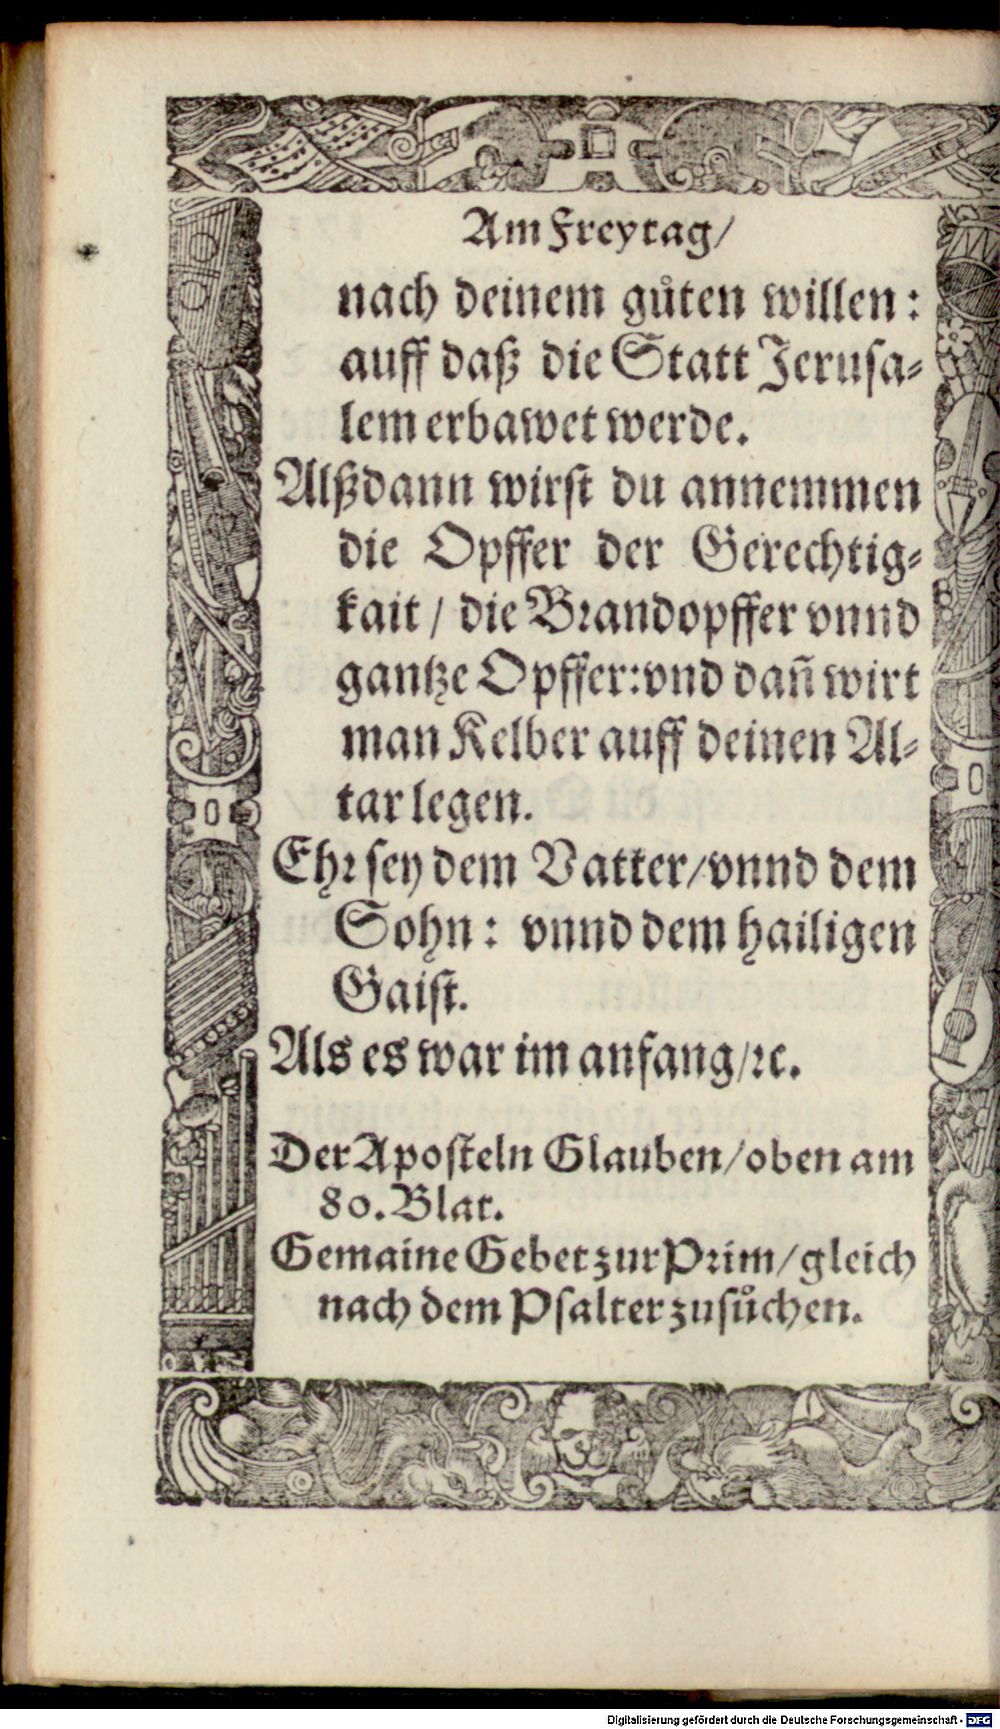 Am Freytag/
nach deinem gůten willen:
auff daß die Statt Jerusa⸗
lem erbawet werde.
Alßdann wirst du annemmen
die Opffer der Gerechtig⸗
kait / die Brandopffer vnnd
gantze Opffer: vnd dañ wirt
man Kelber auff deinen Al⸗
tar legen.
Ehr sey dem Vatter/ vnnd dem
Sohn: vnnd dem hailigen
Gaist.
Als es war im anfang/ ꝛc.
Der Aposteln Glauben/ oben am
80. Blat.
Gemaine Gebet zur Prim/ gleich
nach dem Psalter zusůchen.
Digitalisierung gefördert durch die Deutsche Forschungsgemeinschaft - DFG